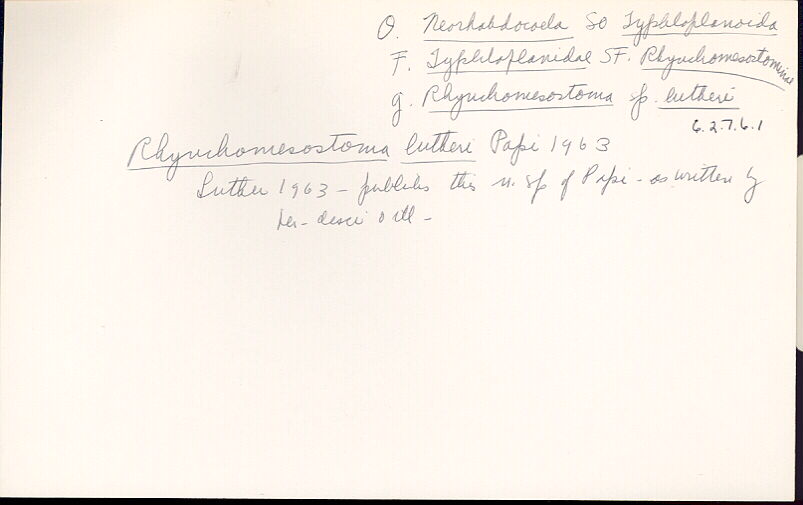 O. Neorhabdocoela SO Typhloplanoida
F. Typhloplanidae SF. Rhynchomesostominae
g. Rhynchomesostoma sp. lutheri
6.2.7.6.1
Rhynchomesostoma lutheri Papi 1963
Luther 1963 - publishes this n. sp of Papi - as written by
- desc